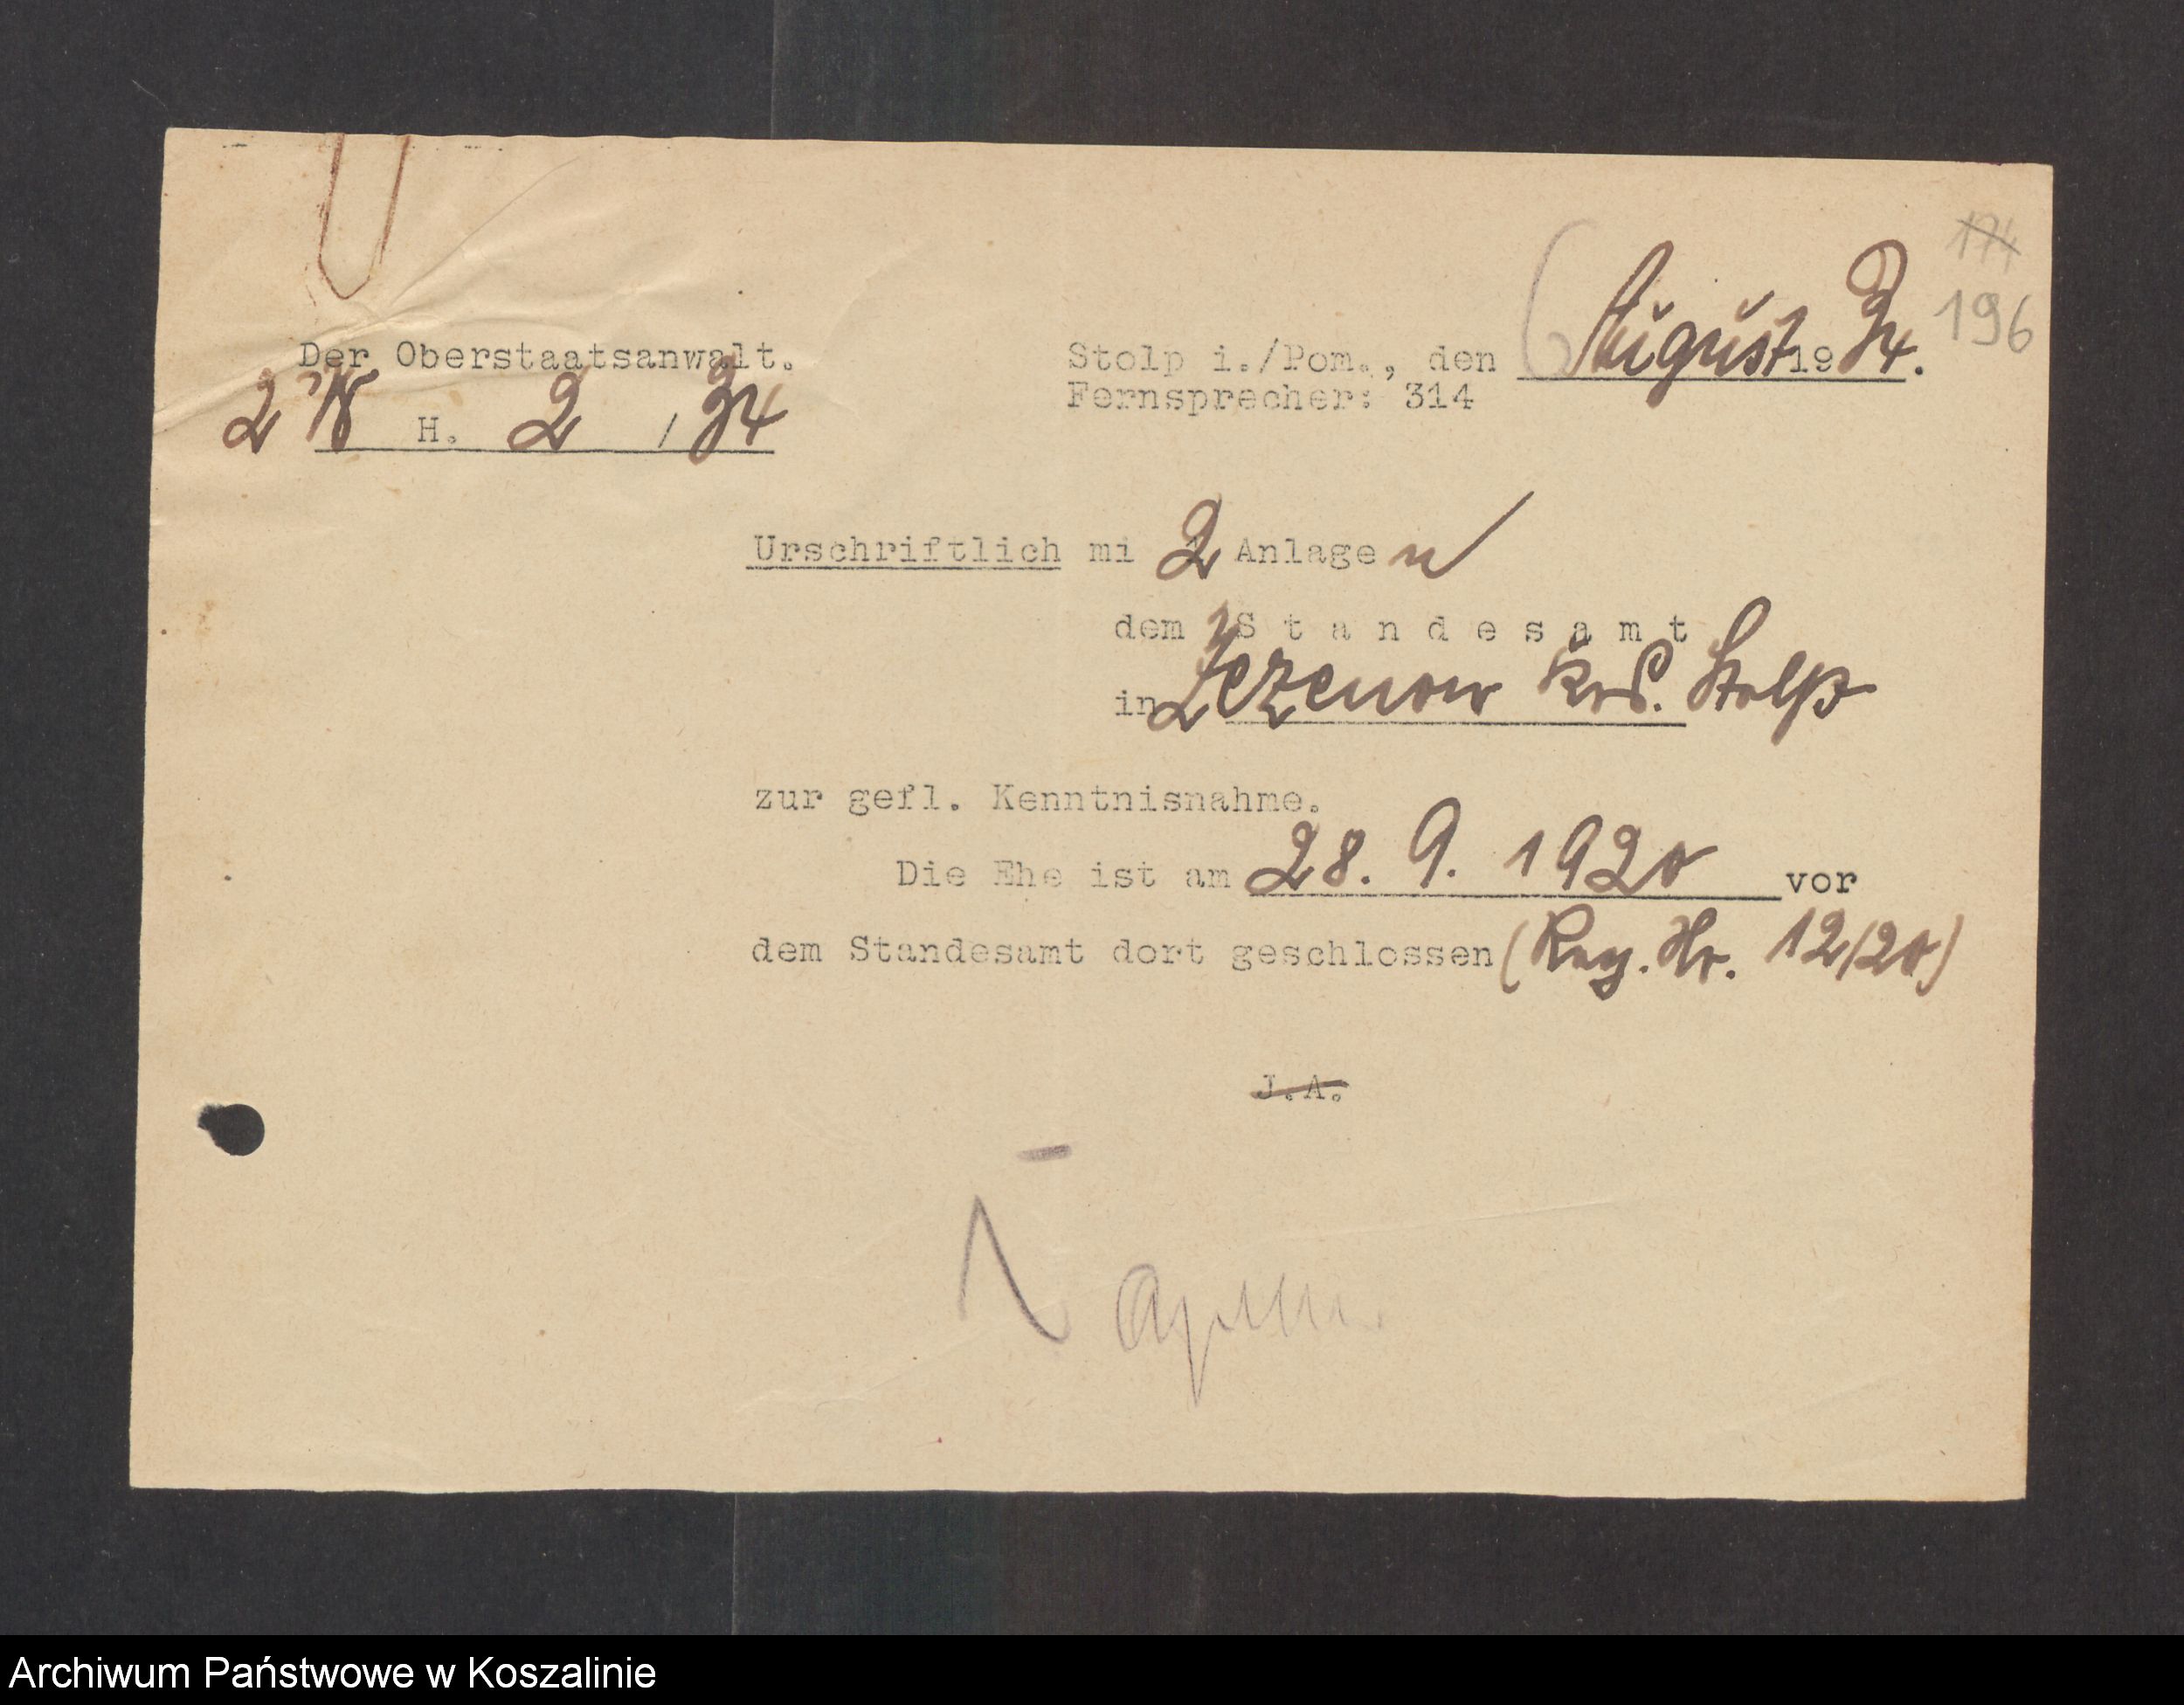 174
196
Der Oberstaatsanwalt.
2 H. 2 / 34
Stolp i./Pom., den 6 August 1934.
Fernsprecher: 314
Urschriftlich mi 2 Anlagen
dem Standesamt
in Zezenow Krs. Stolp
zur gefl. Kenntnisnahme.
Die Ehe ist am 28. 9. 1920 vor
dem Standesamt dort geschlossen (Reg. Nr. 12/20)
J.A.
Archiwum Państwowe w Koszalinie